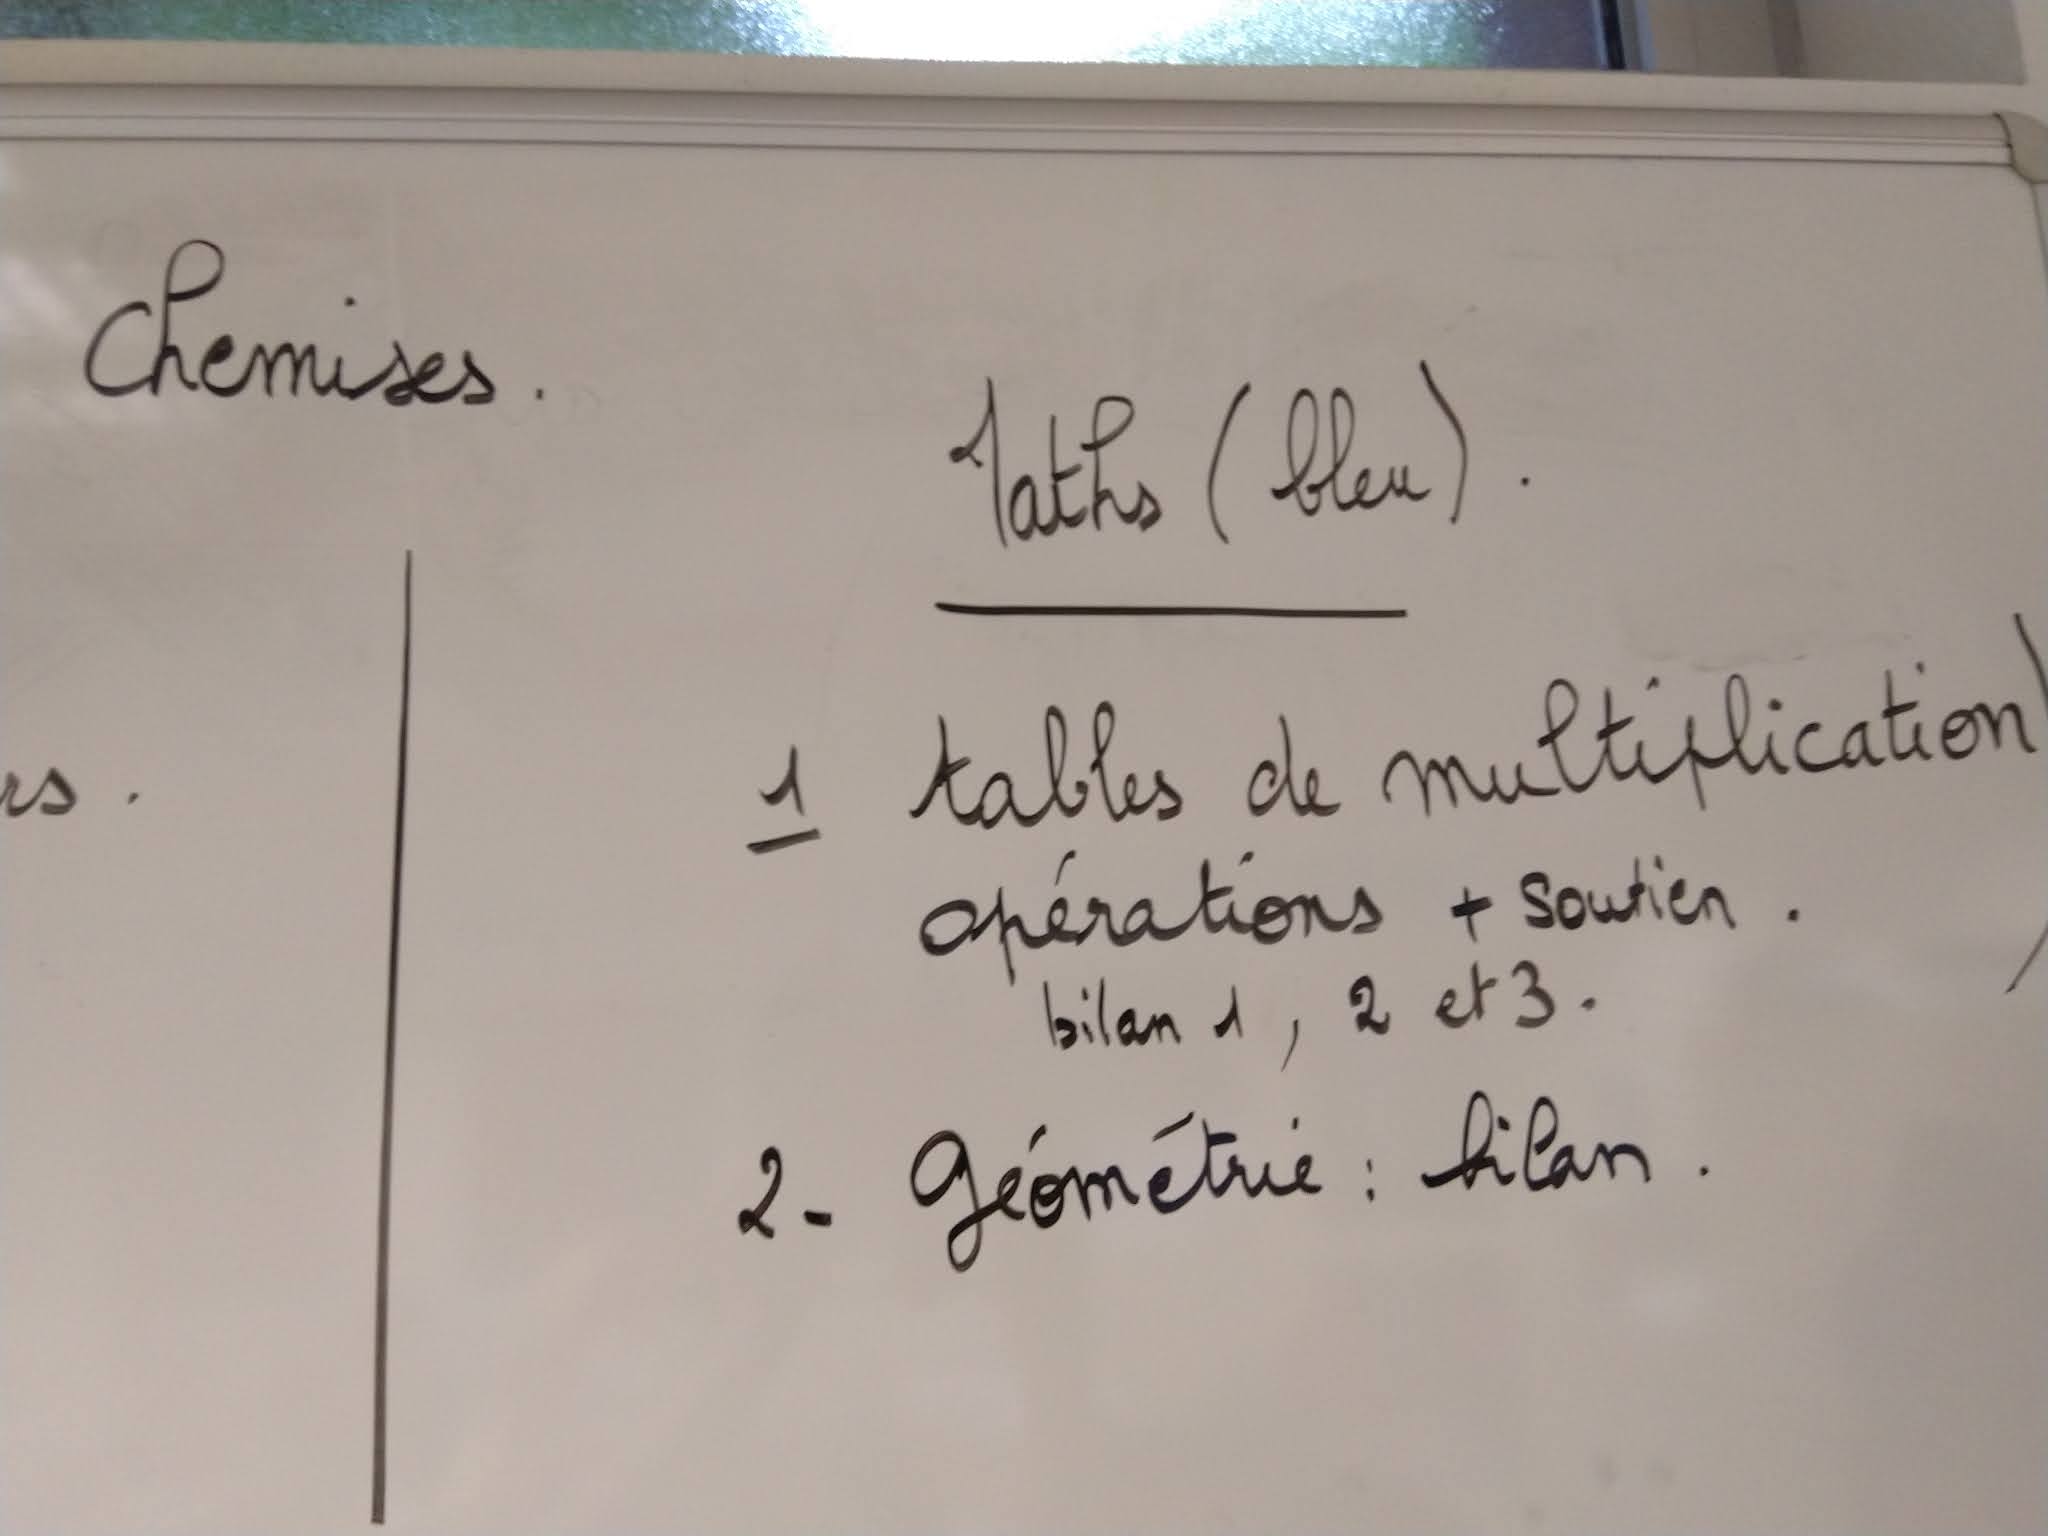 Chemises.
Maths (bleu).
1 tables de multiplication)
opérations + soutien.
bilan 1, 2 et 3.
2- Géométrie : bilan.